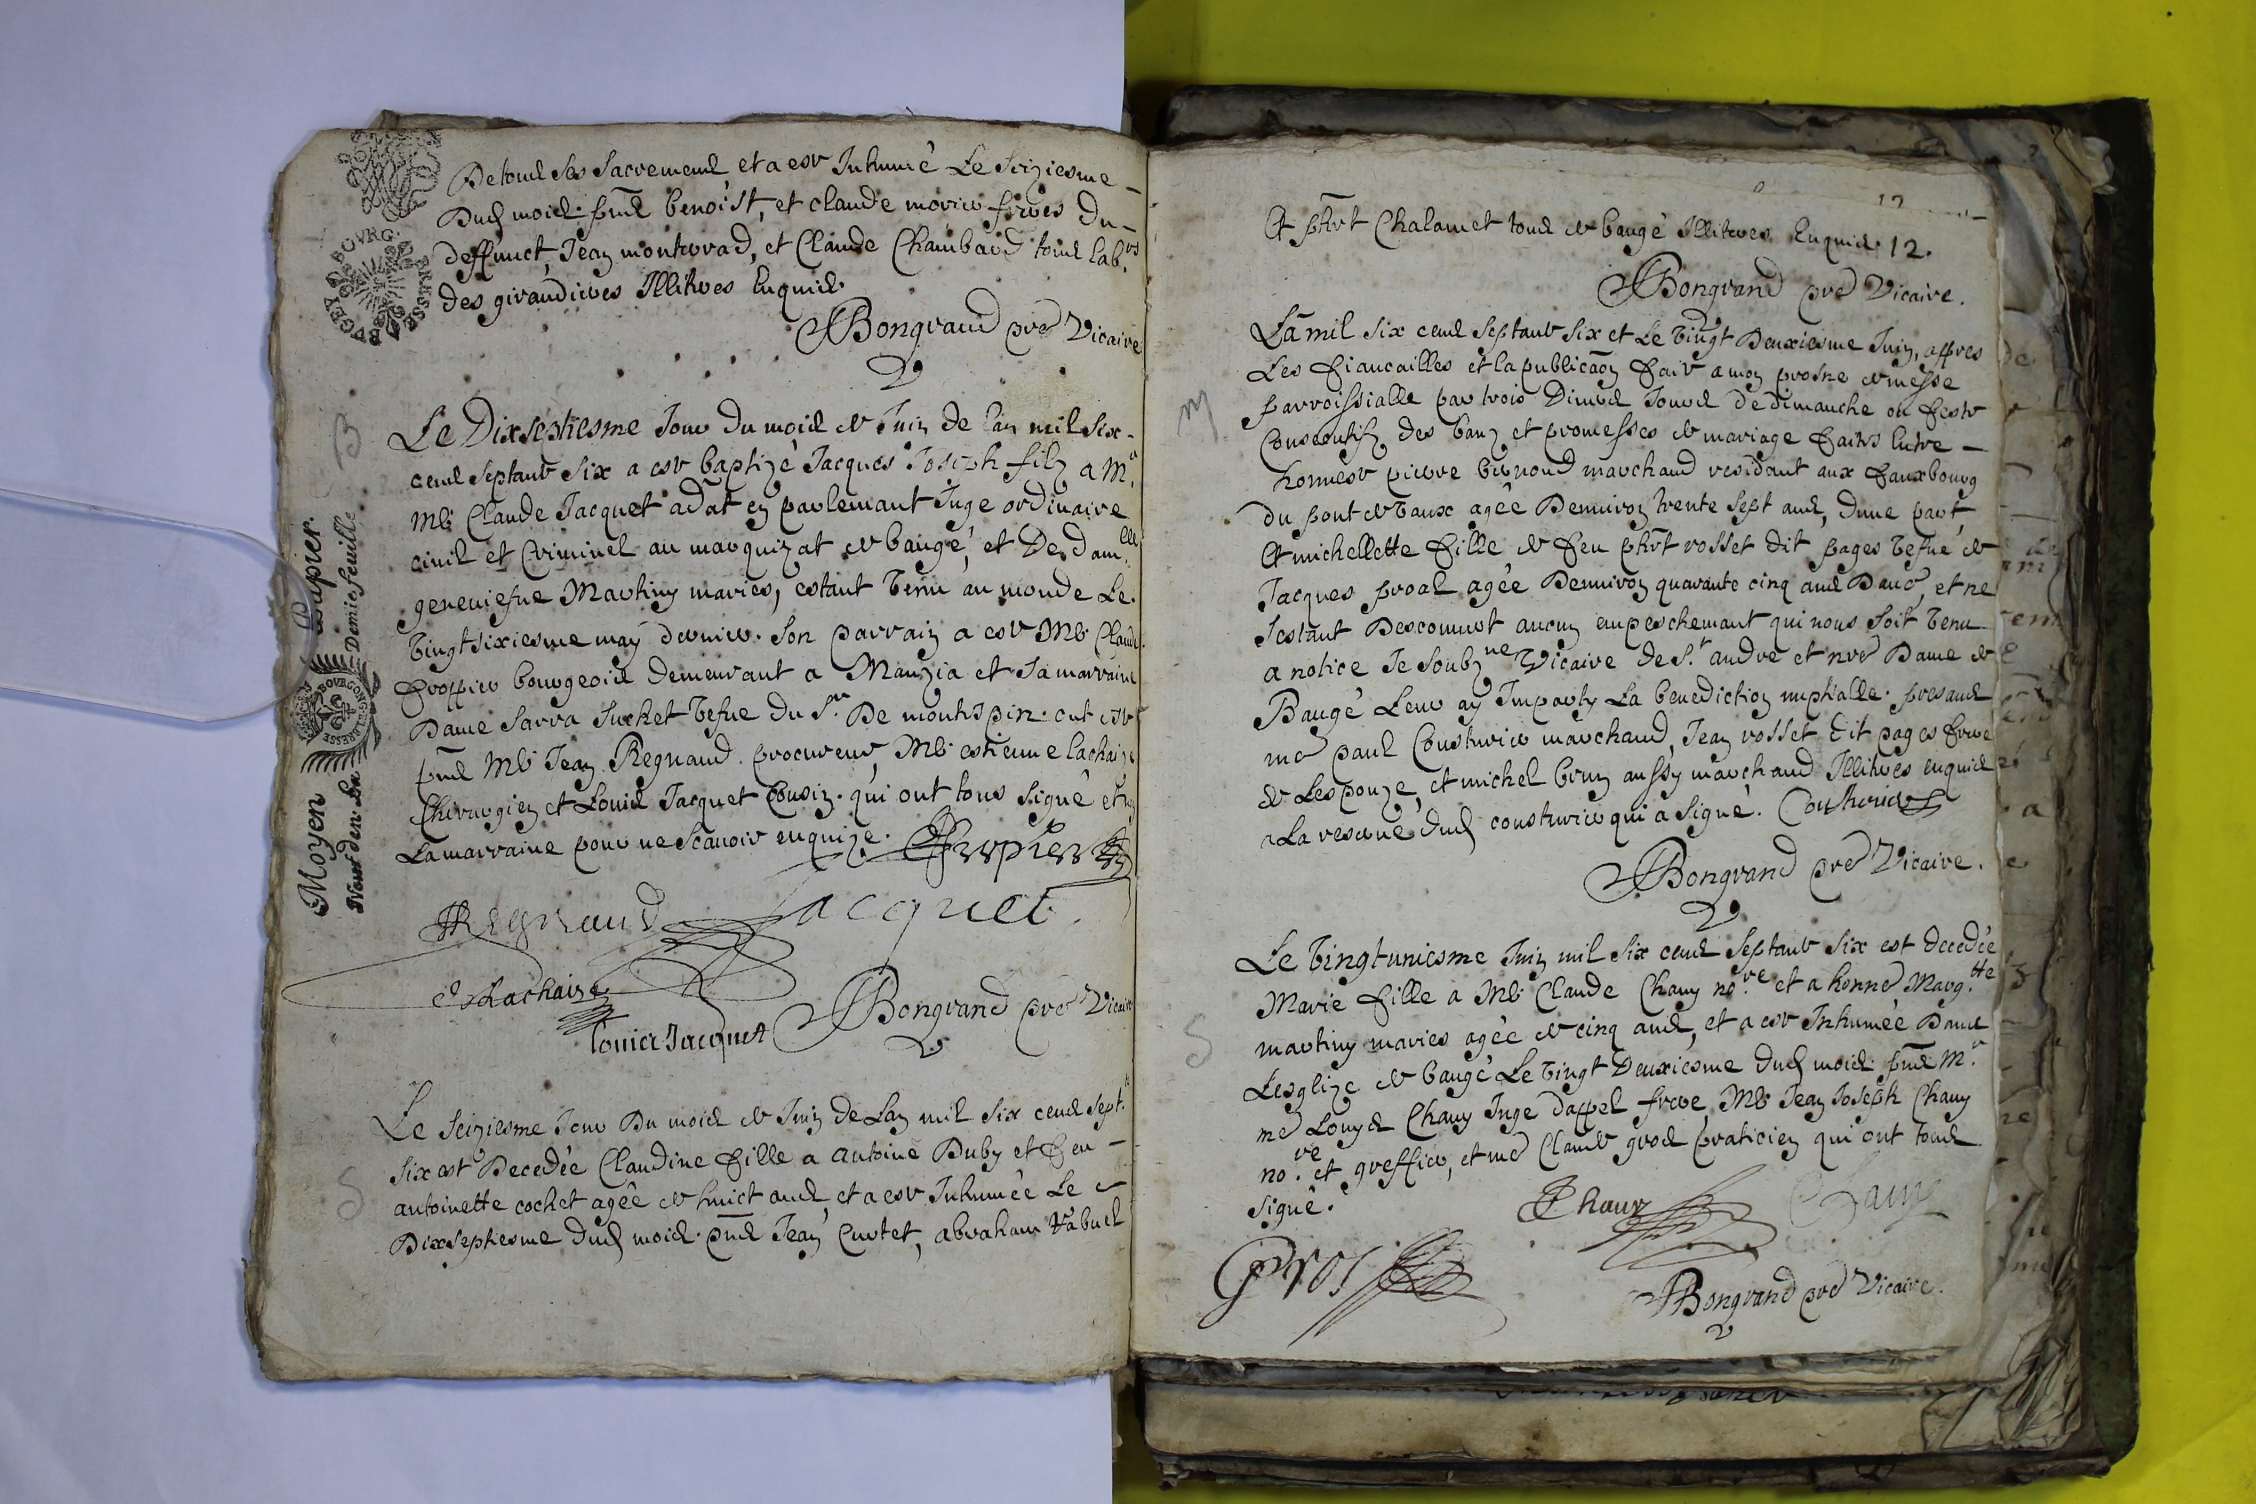 De tous ses sacremens et a este Inhumé Le seiziesme
Dud moid. pnts benoist, et claude morier freres du
deffunct, Jean monterrad, et Claude Chambard tous lab.rs
des girandieres Illiteres Enquis.
Bongrand pre Vicaire
B
Le Dixseptiesme Jour du mois de Juin de l'an mil six
cens septante six a este baptizé Jacques Joseph filz a M.r
Me Claude Jacquet adat en parlemant Juge ordinaire
civil et Criminel au marquizat de baugé, et De dam.lle
geneuiefue Martiny maries, estant venu au monde Le
vingt sixiesme may dernier. Son parrain a este Me Claude
froppier bourgeois demeurant a Manzia et sa marraine
Dame Sarra Suchet vefue du S.r De montispin. ont este
pnts Me Jean Regnaud procureur, Me estienne lachaize
Chirurgien et Louis Jacquet Cousin. qui ont tous signé et
La marraine pour ne scauoir enquize.
Regnaud Jacquet
Lachaize
Bongrand pre Vicaire
Louis Jacquet
S
Le seiziesme Jour Du mois de Juin de Lan mil six cens sept.te
six est Decedée Claudine fille a antoine Duby et feu
antoinette cochet agée de huict ans, et a este Inhumée Le
Dixseptiesme dud mois. pnts Jean Curtet, abraham
Moyen Papier.
Demie feuille
BOVRG. BRESSE BVGEY
12
Et phrt Chalamet tous de baugé Illiteres Enquis. 12.
Bongrand pre Vicaire.
M
La mil six cens septante six et Le vingt Deuxiesme Juin, appres
Les fiancailles et la publicaon faite a mon prosne de messe
parroissialle par trois Divers Jours de dimanche ou feste
Consecutifz des banz et promesses de mariage faites Entre
honneste pierre marchand residant aux fauxbourg
du pont de Vaux agée Denuiron trente sept ans, dune part,
Et michellette fille de feu phrt rosset dit pages vefue de
Jacques proal agée Denuiron quarante cinq ans Dautre, et ne
sestant Descouuert aucun enpeschemant qui nous soit venu
a notice Je soubz.ne Vicaire de S.t andre et nre Dame de
Baugé Leur ay Imparty La benediction nuptialle. presans
me paul Cousturier marchand, Jean rosset dit pages frere
de Lespouze, et michel brun aussy marchand Illiteres enquis
a La reserue dud cousturier qui a signé. Cousturier
Bongrand pre Vicaire.
S
Le vingtuniesme Juin mil six cens septante six est decedée
Marie fille a Me Claude Chauy no.re et a honne Marg.tte
martiny maries agée de cinq ans, et a este Inhumée Dans
Lesglize de baugé Le vingt Deuxiesme dud mois. pnts M.r
me Louys Chauy Juge dappel frere, Me Jean Joseph Chauy
no.re et greffier, et me Claude gros praticien qui ont tous
signé.
Chauy Chauy
Gros
Bongrand pre Vicaire.